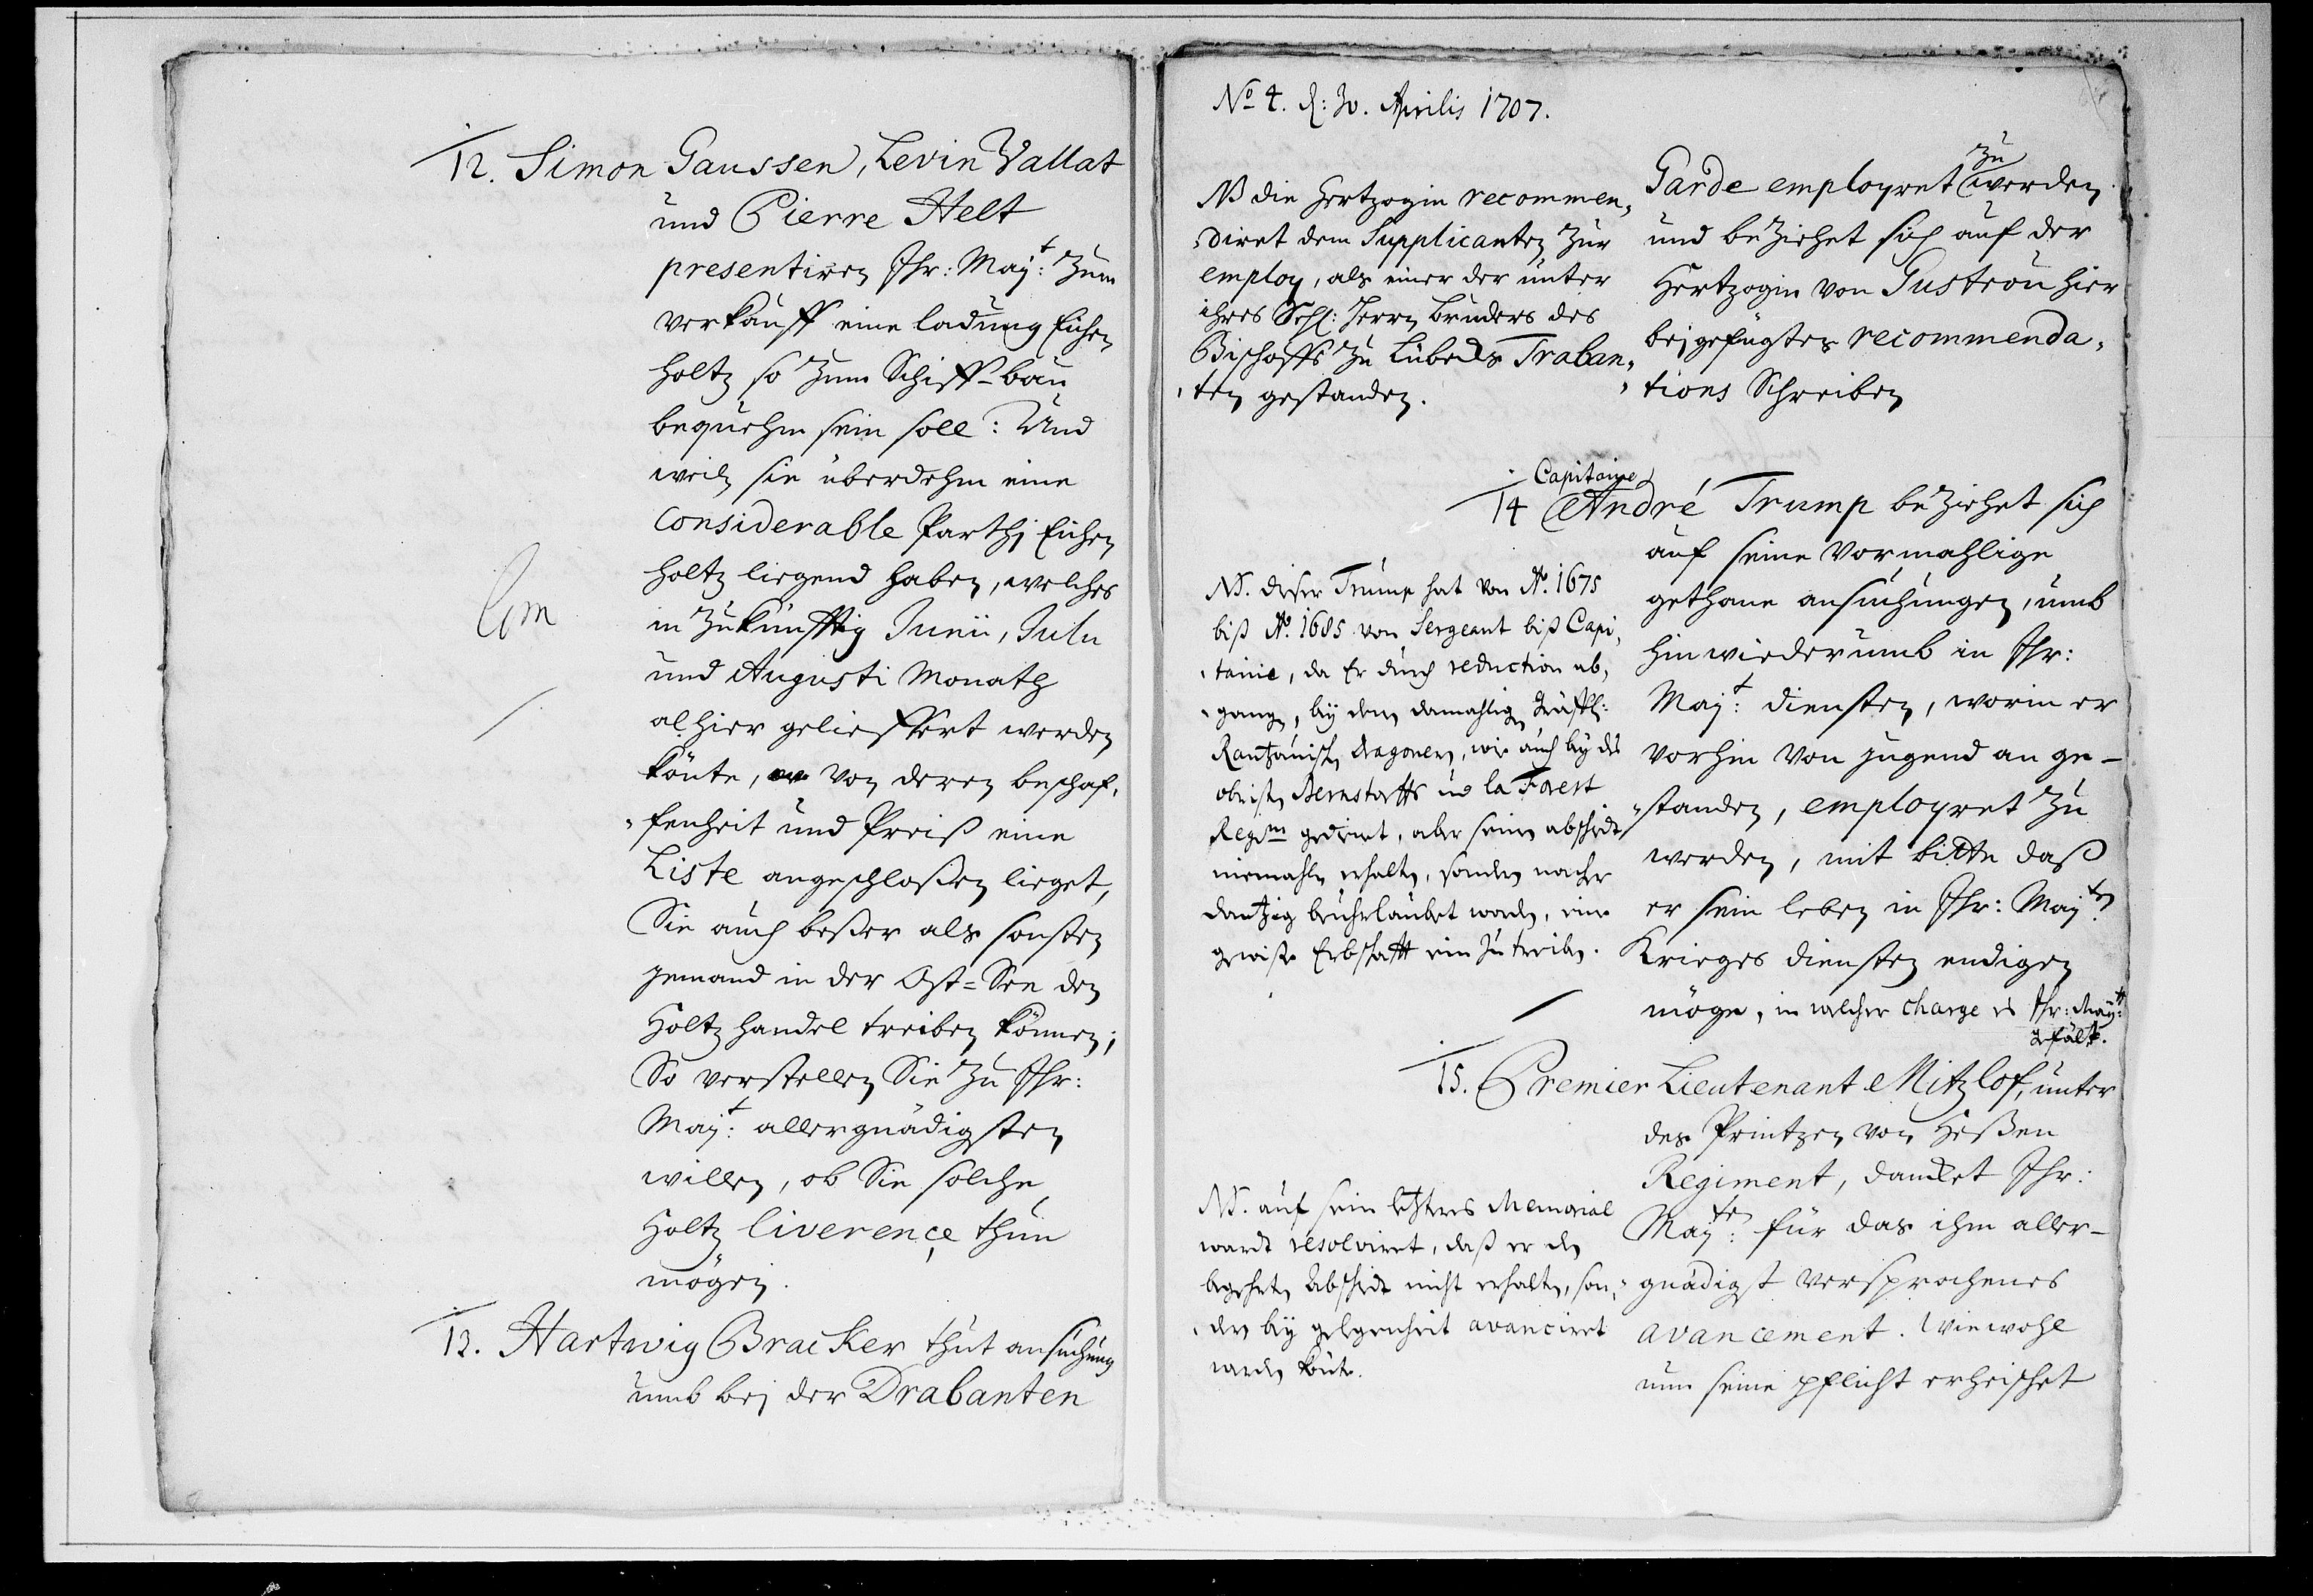 12. Simon Gaussen, Levin Vallat
und Pierre Helt
presentiren Ihr: Maj:t zum
verkauff eine ladung Eichen
holtz so zum Schiff-bau
bequehm sein soll: Und
weilen sie überdehm eine
considerable Parthj Eichen
holtz liegend haben, welches
in zukünfftig Junii, Julii
und Augusti Monath
alhier gelieffert werden
könte, von deren beschaf,
,fenheit und Preiß eine
Liste angeschloßen lieget,
Sie auch beßer als sonsten
jemand in der Ost=See den
Holtz handel treiben können;
So verstellen Sie zu Ihr:
Maj:t allergnädigsten
willen, ob Sie solche
Holtz liverençe thun
mögen.
13. Hartwig Bracker thut ansuchung
umb bej der Drabanten
No 4. d: 30. Aprilis 1707.
Garde employret zu werden
und beziehet sich auf der
Hertzogin von Gustrou hier
bejgefügtes recommenda,
,tions Schreiben
NB die Hertzogin recommen,
,diret dem Supplicanten zur
employ, als einer der unter
ihres Sehl: Herrn bruders des
Bischoffs zu Lübecks Traban,
,ten gestanden.
14 Capitaine André Trump beziehet sich
auf seine vormahlige
gethane ansuchungen, umb
hinwiederumb in Ihr:
Maj:t diensten, worin er
vorhin von jugend an ge-
,standen, employret zu
werden, mit bitte daß
er sein leben in Ihr: Maj:ten
Krieges diensten endigen
möge, in welcher charge es Ihr: Maj:tt
gefält.
NB. dieser Trump hat von Ao. 1675
biß Ao. 1685 von Sergeant biß Capi,
,taine, da Er durch reduction ab,
,gangen, bey dem damahligen Gräffl:
Rantzauischen Dragonern, wie auch bey des
obristen Bernstorffs und la Forest
Regim gedienet, aber seinen abscheidt
niemahlen erhalten, sondern nacher
Dantzig beuhrlaubet worden, eine
gewiße Erbschafft einzutreiben.
15. Premier Lieutenant Mitzlof, unter
des Printzen von Heßen
Regiment, dancket Ihr:
Maj:ten für das ihm aller-
gnädigst versprochenes
avancement. Wiewohl
nun seine pflicht erheischet
NB. auf sein letzteres Memorial
wardt resolviret, daß er den
begehrten Abscheidt nicht erhalten, son,
,dern bey gelegenheit avanciret
werden könte.